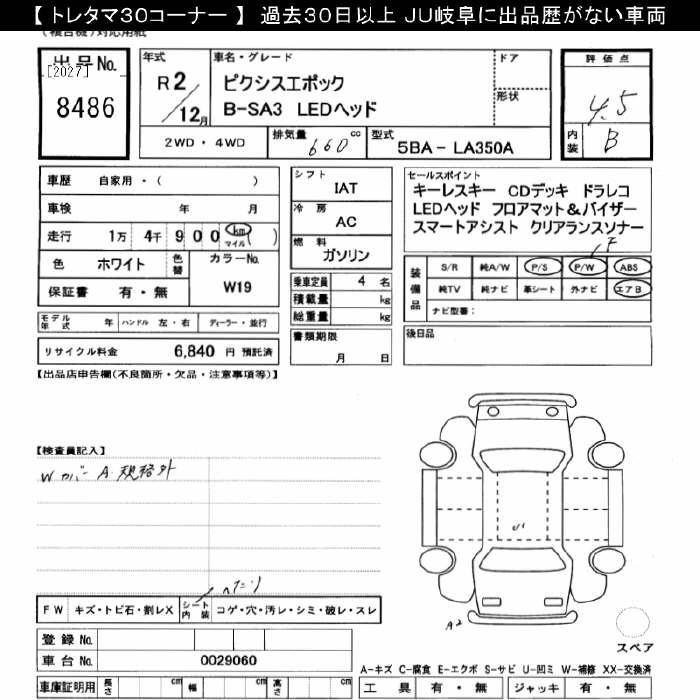 【 トレタマ30コーナー 】 過去30日以上 JU岐阜に出品歴がない車両
(複合機)対応用紙
出品No.
[2027]
8486
年式
R 2/12月
車名・グレード
ピクシスエポック
B-SA3 LEDヘッド
ドア
形状
評価点
4.5
内装
B
2WD ・ 4WD
排気量
660 cc
型式
5BA - LA350A
車歴 自家用・( )
車検 年 月
走行 1万 4千 900 km マイル ( )
色 ホワイト 色替 カラーNo.
保証書 有・無 W19
シフト
IAT
冷房
AC
燃料
ガソリン
乗車定員 4 名
積載量 kg
総重量 kg
書類期限
月 日
セールスポイント
キーレスキー CDデッキ ドラレコ
LEDヘッド フロアマット&バイザー
スマートアシスト クリアランスソナー
F
装備品
S/R 純A/W P/S P/W ABS
純TV 純ナビ 革シート 外ナビ エアB
ナビ型番：
後日品
モデル年式 年 ハンドル 左・右 ディーラー・並行
リサイクル料金 6,840 円 預託済
【出品店申告欄(不良箇所・欠品・注意事項等)】
【検査員記入】
Wカバー A 規格外
U1
A2
へたり
FW キズ・トビ石・割レX シート内装 コゲ・穴・汚レ・シミ・破レ・スレ
スペア
登録No.
車台No. 0029060
A-キズ C-腐食 E-エクボ S-サビ U-凹ミ W-補修 XX-交換済
車庫証明用 長さ cm 幅 cm 高さ cm
工具 有・無 ジャッキ 有・無